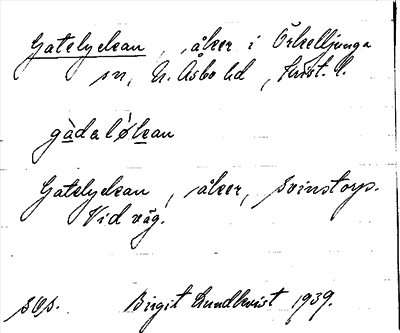 Gatelyckan, åker i Örkelljunga
sn, N. Åsbo hd, Krist. l.
gàdəløkan
Gatelyckan, åker, Svinstorp.
Vid väg.
sOs. Birgit Lundkvist 1939.